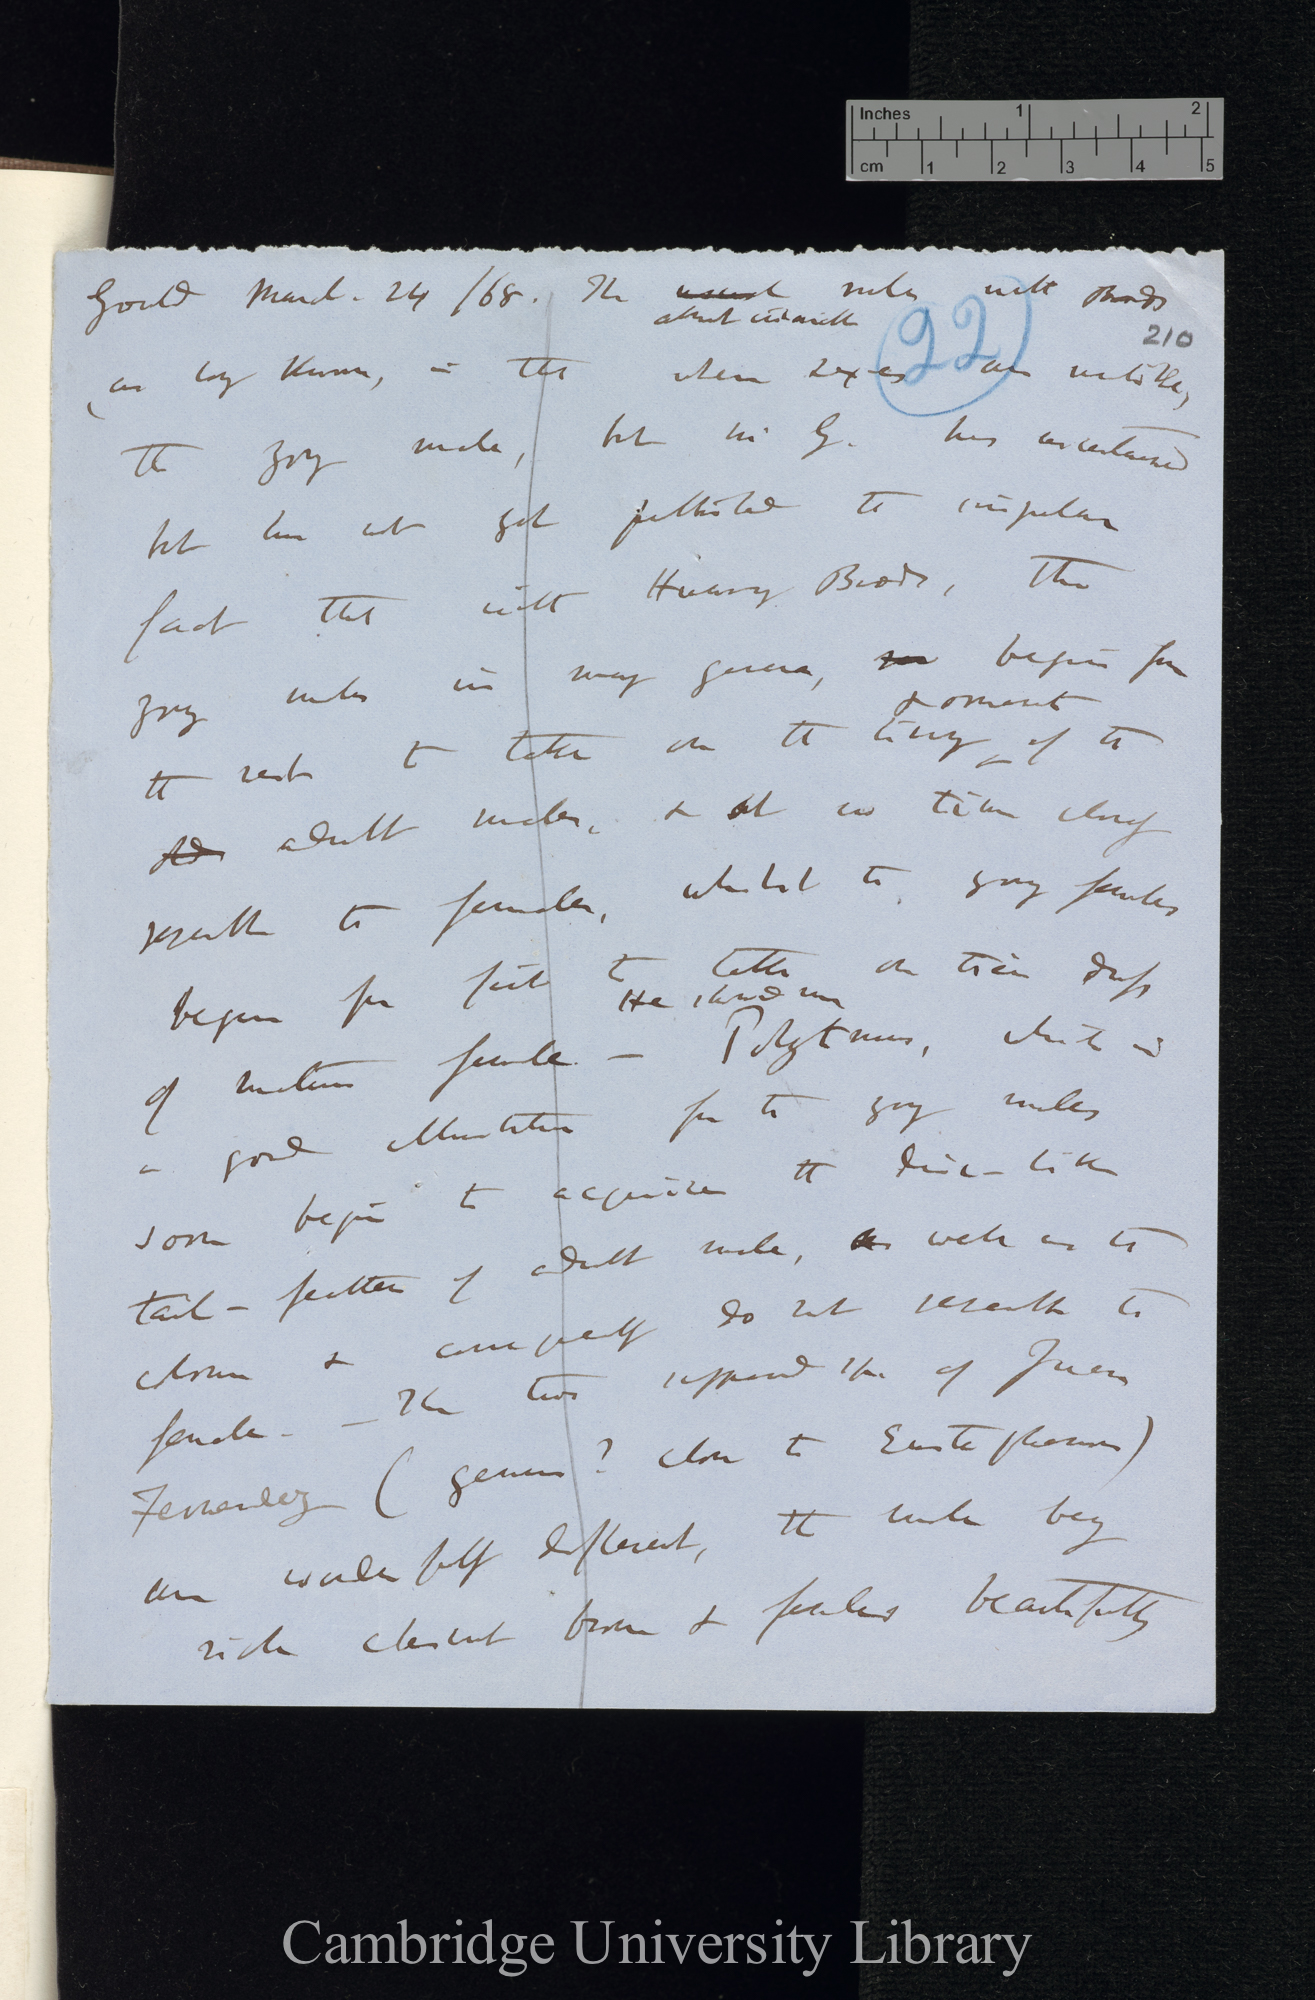 Inches 1 2
cm 1 2 3 4 5
Gould March. 24 /68. The usual rule with Birds
almost invariable
22
210
(as long known, is that when sexes are unlike,
the young male, but Mr G. has ascertained
but has not yet published the singular
fact that with Humming Birds, the
young males in many genera, begin from
& ornament
the nest to take on the livery of the
adult males, & at no time closely
resemble the females, whilst the young females
begin from first to take on their dress
He showed me
of mature female. — Polytmus, which is
a good illustration for the young males
soon begin to acquire the disc-like
tail-feathers of adult male, as well as the
colours & consequently do not resemble the
female. — The two supposed spec. of Juan
Fernandez (genus? close to Eustephanus)
are wonderfully different, the male being
rich chesnut brown & females beautifully
Cambridge University Library